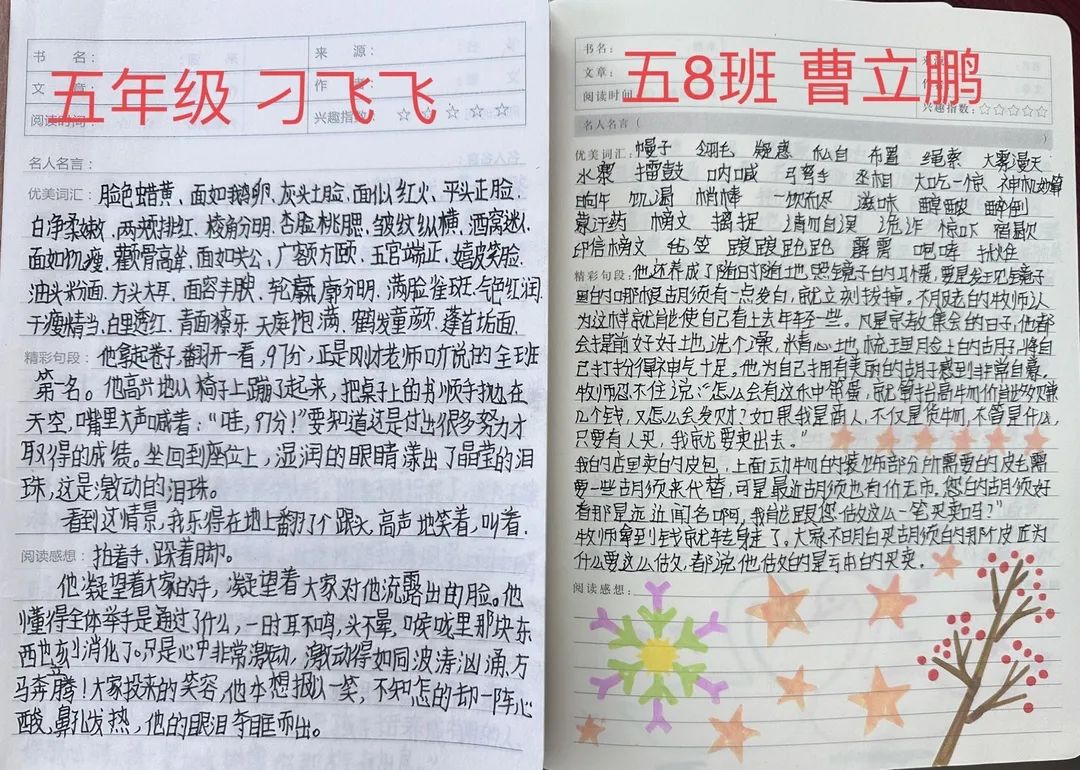 书 名：
来 源：
文 章：
作 者：
阅读时间：
兴趣指数：☆☆☆☆☆
五年级 刁飞飞
名人名言：
优美词汇：脸色蜡黄、面如鹅卵、灰头土脸、面似红火、平头正脸、
白净柔嫩、两颊排红、棱角分明、杏脸桃腮、皱纹纵横、酒窝迷人
面如饥瘦、颧骨高耸、面如关公、广额方颐、五官端正、嬉皮笑脸、
油头粉面、方头大耳、面容丰腴、轮廓分明、满脸雀斑、气色红润
干瘦精当、白里透红、青面獠牙、天庭饱满、鹤发童颜、蓬首垢面、
精彩句段：他拿起卷子，翻开一看，97分，正是刚才老师所说的全班
第一名。他高兴地从椅子上蹦了起来，把桌子上的书顺手抛在
天空，嘴里大声喊着：“哇，97分！”要知道这是付出很多努力才
取得的成绩。坐回到座位上，湿润的眼睛漾出了晶莹的泪
珠，这是激动的泪珠。
看到这情景，我乐得在地上翻了个跟头，高声地笑着，叫着，
阅读感想：拍着手、跺着脚。
他凝望着大家的手，凝望着大家对他流露出的脸。他
懂得全体举手是通过了什么，一时耳不鸣，头不晕，喉咙里那块东
西也立刻消化了。只是心中非常激动，激动得如同波涛汹涌，万
马奔腾！大家投来的笑容，他本想报以一笑，不知怎的却一阵心
酸，鼻孔发热，他的眼泪夺眶而出。
书名：
来源
文章：
作
阅读时间
兴趣指数：☆☆☆☆☆
五8班 曹立鹏
名人名言（ ）
优美词汇：幔子 翎毛 疑惑 私自 布置 绳索 大雾漫天
水寨 擂鼓 呐喊 弓弩手 丞相 大吃一惊 神机妙算
晌午 饥渴 梢棒 一饮而尽 滋味 酒醉 醉倒
蒙汗药 榜文 捕捉 请勿自误 诡诈 惊吓 宿歇
印信榜文 毡笠 踉踉跄跄 霹雳 咆哮
精彩句段：他还养成了随时随地照镜子的习惯，要是发现镜子
里的哪根胡须有一点发白，就立刻拔掉。不服老的牧师认
为这样就能使自己看上去年轻一些。凡是宗教集会的日子，他都
会提前好好地洗个澡，精心地梳理月脸上的胡子，将自
己打扮得神气十足。他为自己拥有美丽的胡子感到非常自豪。
牧师忍不住说：“怎么会有这种笨蛋，就算抬高牛的价值多赚
几个钱，又怎么会发财？如果我是商人，不仅是货物，不管是什么，
只要有人买，我就要卖出去。”
我的店里卖的皮包，上面动物的装饰部分所需要的皮毛需
要一些胡须来代替，可是最近胡须也有价无市。您的胡须好
看那是远近闻名啊，我能跟您做这么一笔买卖吗？”
牧师拿到钱就转身走了。大家不明白买胡须的那个皮匠为
什么要这么做，都说他做的是亏本的买卖。
阅读感想：